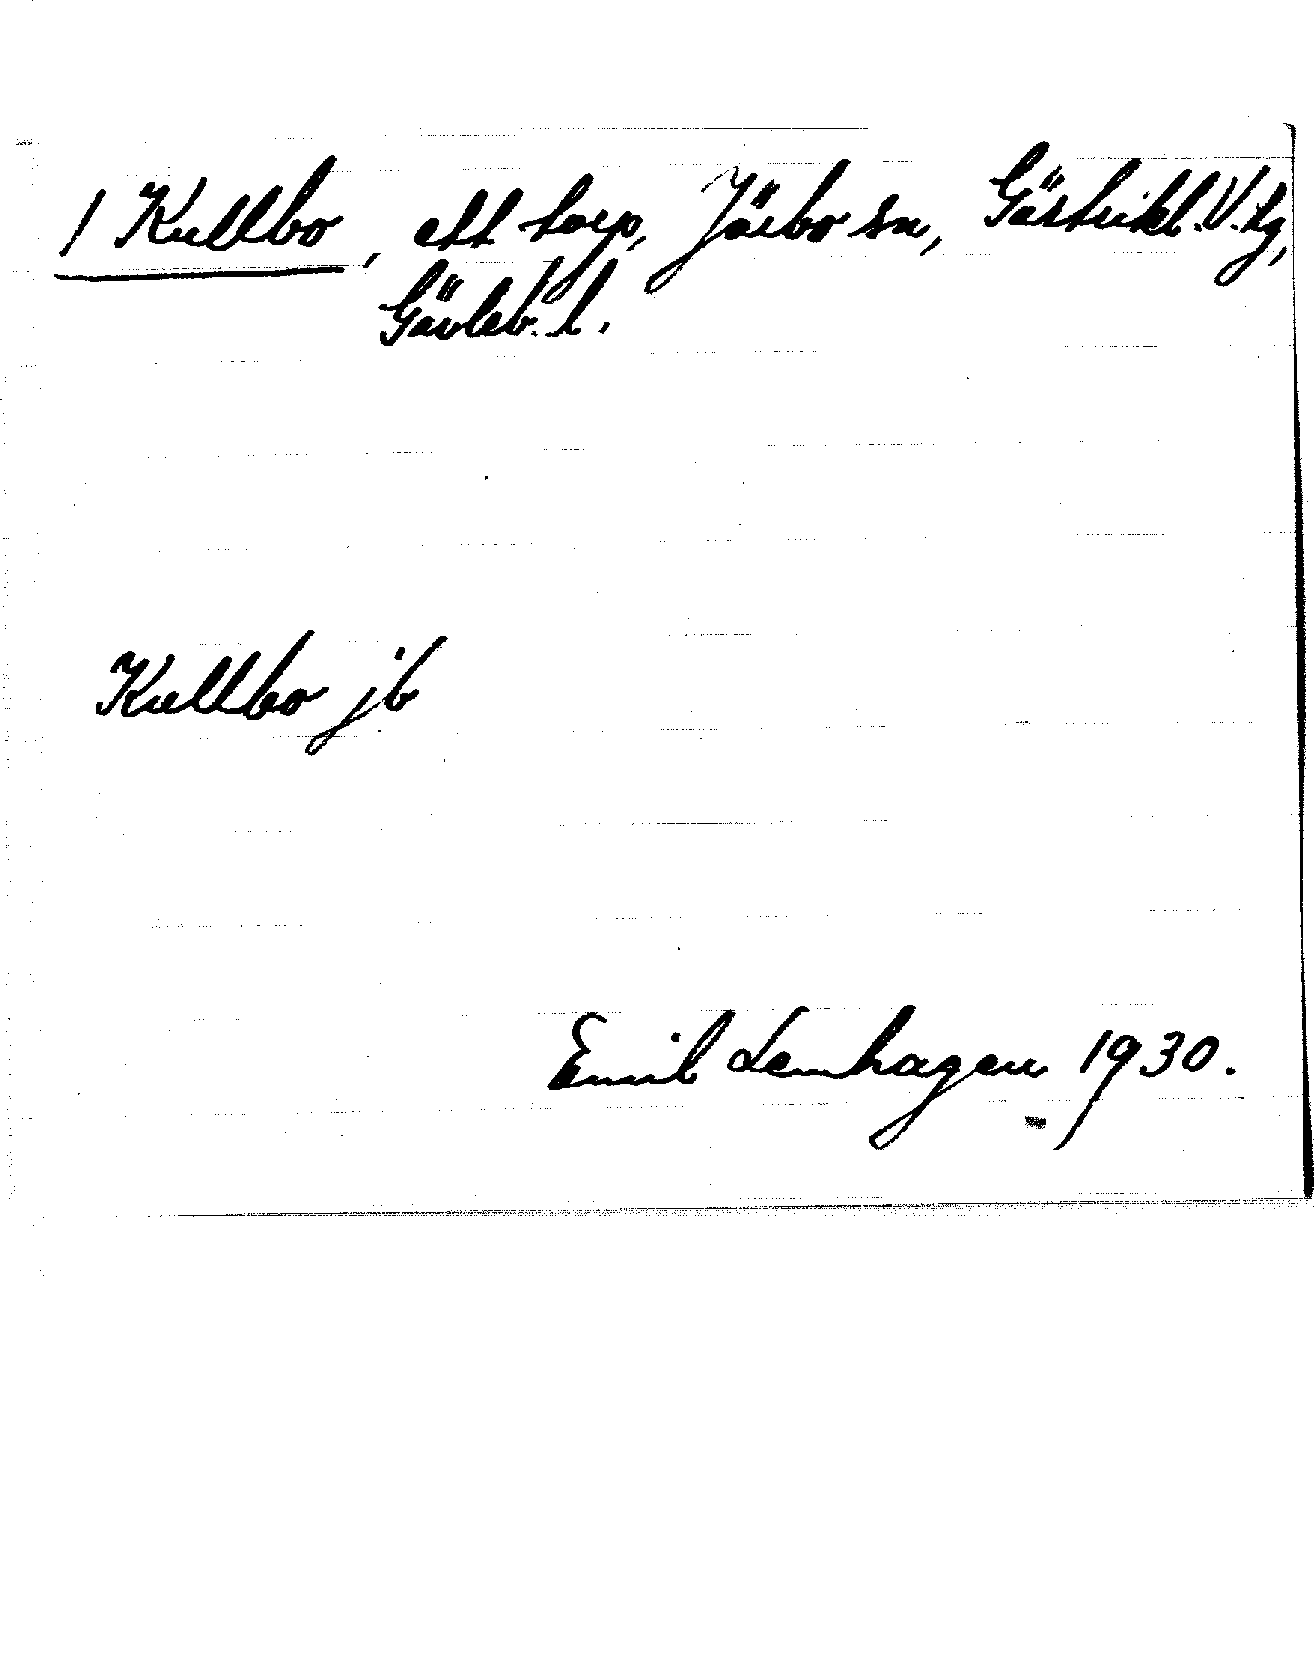 / Kullbo, ett torp, Järbo sn, Gästrikl. V. tg,
Gävleb. l.
Kullbo jb
Emil Lenhagen 1930.